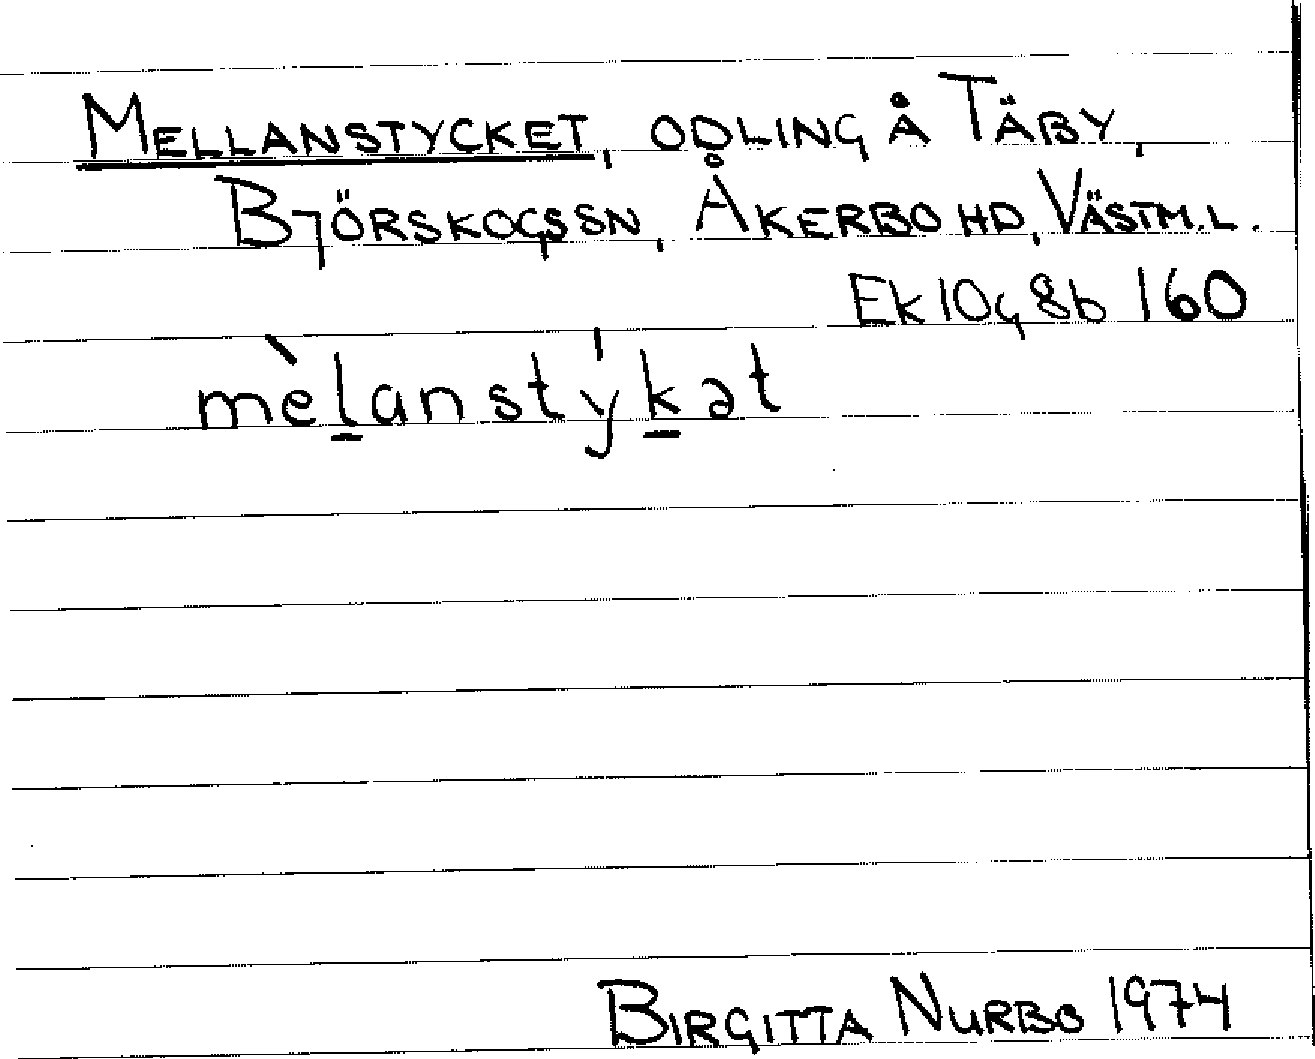 MELLANSTYCKET, ODLING Å TÄBY,
BJÖRSKOGS SN, ÅKERBO HD, VÄSTM.L.
Ek 10g 8b 160
mèl̲anstýk̲ət
BIRGITTA NURBO 1974